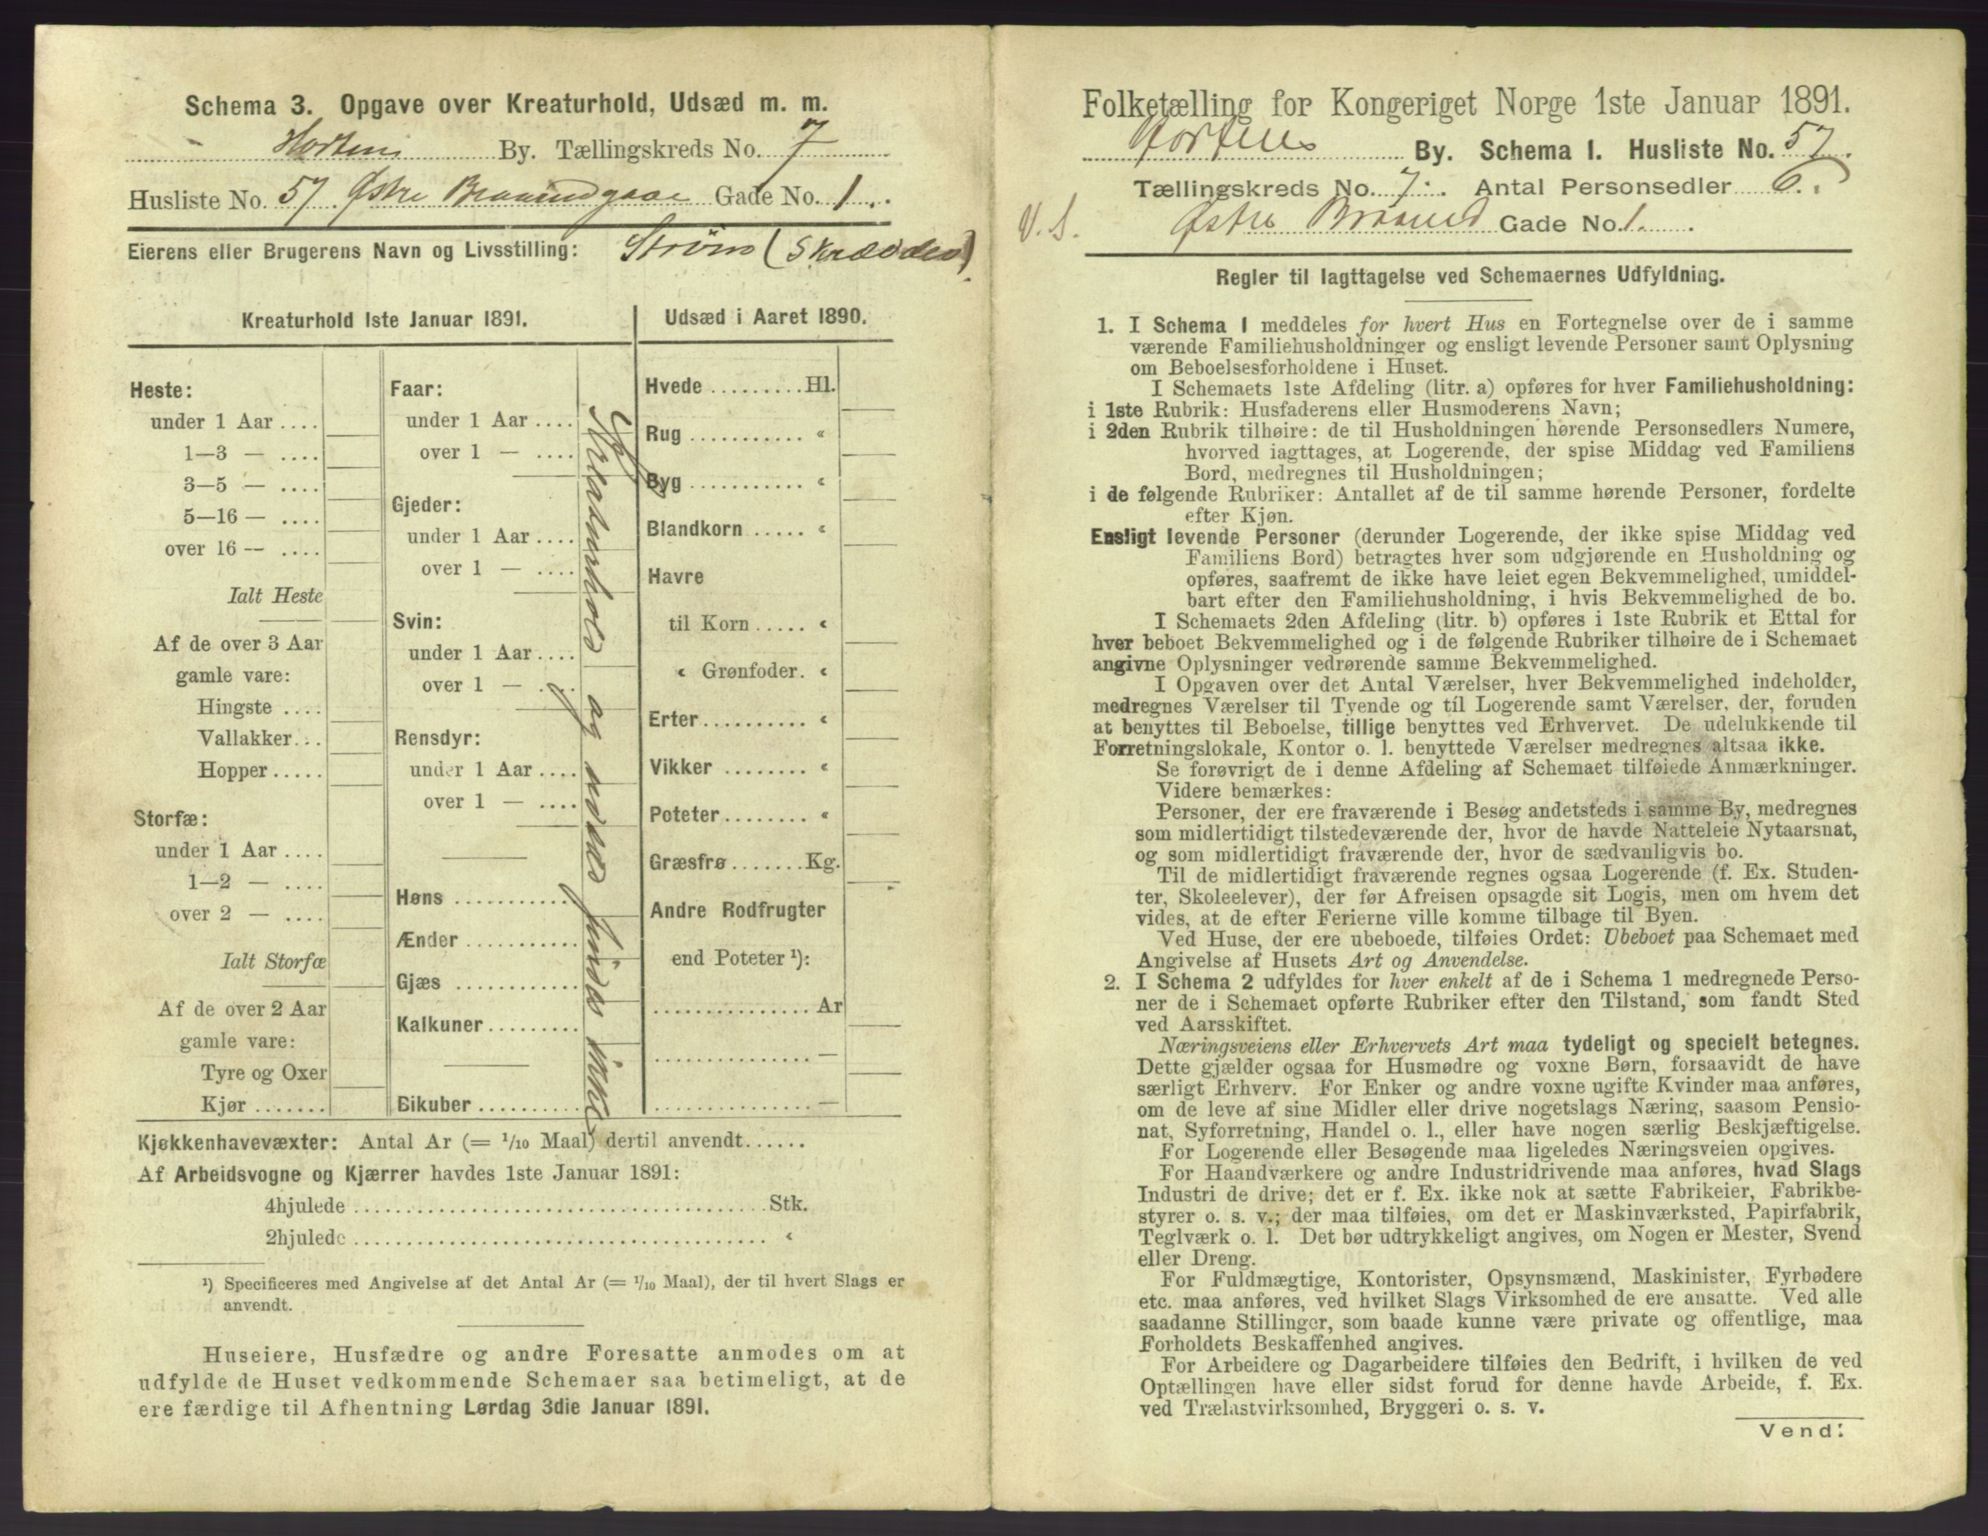 Schema 3. Opgave over Kreaturhold, Udsæd m. m.
Horten By. Tællingskreds No. 7
Husliste No. 57 Østre Gade No. 1.
Eierens eller Brugerens Navn og Livsstilling: Strøm (Skrædder)
Kreaturhold 1ste Januar 1891.
Heste:
under 1 Aar ....
1—3 — ....
3—5 — ....
5—16 — ....
over 16 — ....
Ialt Heste
Af de over 3 Aar
gamle vare:
Hingste ....
Vallakker...
Hopper.....
Storfæ:
under 1 Aar ....
1—2 — ....
over 2 — ....
Ialt Storfæ
Af de over 2 Aar
gamle vare:
Tyre og Oxer
Kjør .......
Faar:
under 1 Aar ....
over 1 — ....
Gjeder:
under 1 Aar ....
over 1 — ....
Svin:
under 1 Aar ....
over 1 — ....
Rensdyr:
under 1 Aar ....
over 1 — ....
Høns ..........
Ænder ...........
Gjæs ............
Kalkuner .........
Bikuber ..........
Kreaturhold og Udsæd findes ikke
Udsæd i Aaret 1890.
Hvede ......... Hl.
Rug ........... «
Byg ........... «
Blandkorn ..... «
Havre
til Korn ..... «
« Grønfoder. «
Erter .......... «
Vikker ........ «
Poteter ........ «
Græsfrø ....... Kg.
Andre Rodfrugter
end Poteter ¹):
............... Ar
............... —
............... —
Kjøkkenhavevæxter: Antal Ar (= 1/10 Maal) dertil anvendt......
Af Arbeidsvogne og Kjærrer havdes 1ste Januar 1891:
4hjulede ........................................ Stk.
2hjulede ........................................ «
¹) Specificeres med Angivelse af det Antal Ar (= 1/10 Maal), der til hvert Slags er
anvendt.
Huseiere, Husfædre og andre Foresatte anmodes om at
udfylde de Huset vedkommende Schemaer saa betimeligt, at de
ere færdige til Afhentning Lørdag 3die Januar 1891.
Folketælling for Kongeriget Norge 1ste Januar 1891.
Hortens By. Schema 1. Husliste No. 57.
Tællingskreds No. 7. Antal Personsedler 6.
V. S. Østre Braaned Gade No. 1.
Regler til Iagttagelse ved Schemaernes Udfyldning.
1. I Schema 1 meddeles for hvert Hus en Fortegnelse over de i samme
værende Familiehusholdninger og ensligt levende Personer samt Oplysning
om Beboelsesforholdene i Huset.
I Schemaets 1ste Afdeling (litr. a) opføres for hver Familiehusholdning:
i 1ste Rubrik: Husfaderens eller Husmoderens Navn;
i 2den Rubrik tilhøire: de til Husholdningen hørende Personsedlers Numere,
hvorved iagttages, at Logerende, der spise Middag ved Familiens
Bord, medregnes til Husholdningen;
i de følgende Rubriker: Antallet af de til samme hørende Personer, fordelte
efter Kjøn.
Ensligt levende Personer (derunder Logerende, der ikke spise Middag ved
Familiens Bord) betragtes hver som udgjørende en Husholdning og
opføres, saafremt de ikke have leiet egen Bekvemmelighed, umiddel-
bart efter den Familiehusholdning, i hvis Bekvemmelighed de bo.
I Schemaets 2den Afdeling (litr. b) opføres i 1ste Rubrik et Ettal for
hver beboet Bekvemmelighed og i de følgende Rubriker tilhøire de i Schemaet
angivne Oplysninger vedrørende samme Bekvemmelighed.
I Opgaven over det Antal Værelser, hver Bekvemmelighed indeholder,
medregnes Værelser til Tyende og til Logerende samt Værelser, der, foruden
at benyttes til Beboelse, tillige benyttes ved Erhvervet. De udelukkende til
Forretningslokale, Kontor o. l. benyttede Værelser medregnes altsaa ikke.
Se forøvrigt de i denne Afdeling af Schemaet tilføiede Anmærkninger.
Videre bemærkes:
Personer, der ere fraværende i Besøg andetsteds i samme By, medregnes
som midlertidigt tilstedeværende der, hvor de havde Natteleie Nytaarsnat,
og som midlertidigt fraværende der, hvor de sædvanligvis bo.
Til de midlertidigt fraværende regnes ogsaa Logerende (f. Ex. Studen-
ter, Skoleelever), der før Afreisen opsagde sit Logis, men om hvem det
vides, at de efter Ferierne ville komme tilbage til Byen.
Ved Huse, der ere ubeboede, tilføies Ordet: Ubeboet paa Schemaet med
Angivelse af Husets Art og Anvendelse.
2. I Schema 2 udfyldes for hver enkelt af de i Schema 1 medregnede Perso-
ner de i Schemaet opførte Rubriker efter den Tilstand, som fandt Sted
ved Aarsskiftet.
Næringsveiens eller Erhvervets Art maa tydeligt og specielt betegnes.
Dette gjælder ogsaa for Husmødre og voxne Børn, forsaavidt de have
særligt Erhverv. For Enker og andre voxne ugifte Kvinder maa anføres,
om de leve af sine Midler eller drive nogetslags Næring, saasom Pensio-
nat, Syforretning, Handel o. l., eller have nogen særlig Beskjæftigelse.
For Logerende eller Besøgende maa ligeledes Næringsveien opgives.
For Haandværkere og andre Industridrivende maa anføres, hvad Slags
Industri de drive; det er f. Ex. ikke nok at sætte Fabrikeier, Fabrikbe-
styrer o. s. v.; der maa tilføies, om det er Maskinværksted, Papirfabrik,
Teglværk o. l. Det bør udtrykkeligt angives, om Nogen er Mester, Svend
eller Dreng.
For Fuldmægtige, Kontorister, Opsynsmænd, Maskinister, Fyrbødere
etc. maa anføres, ved hvilket Slags Virksomhed de ere ansatte. Ved alle
saadanne Stillinger, som baade kunne være private og offentlige, maa
Forholdets Beskaffenhed angives.
For Arbeidere og Dagarbeidere tilføies den Bedrift, i hvilken de ved
Optællingen have eller sidst forud for denne havde Arbeide, f. Ex.
ved Trælastvirksomhed, Bryggeri o. s. v.
Vend!